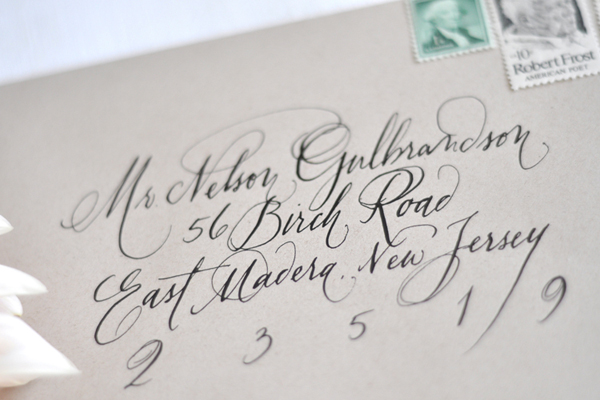 10¢
Robert Frost
AMERICAN POET
Mr. Nelson Gulbrandson
56 Birch Road
East Madera, New Jersey
2 3 5 1 9